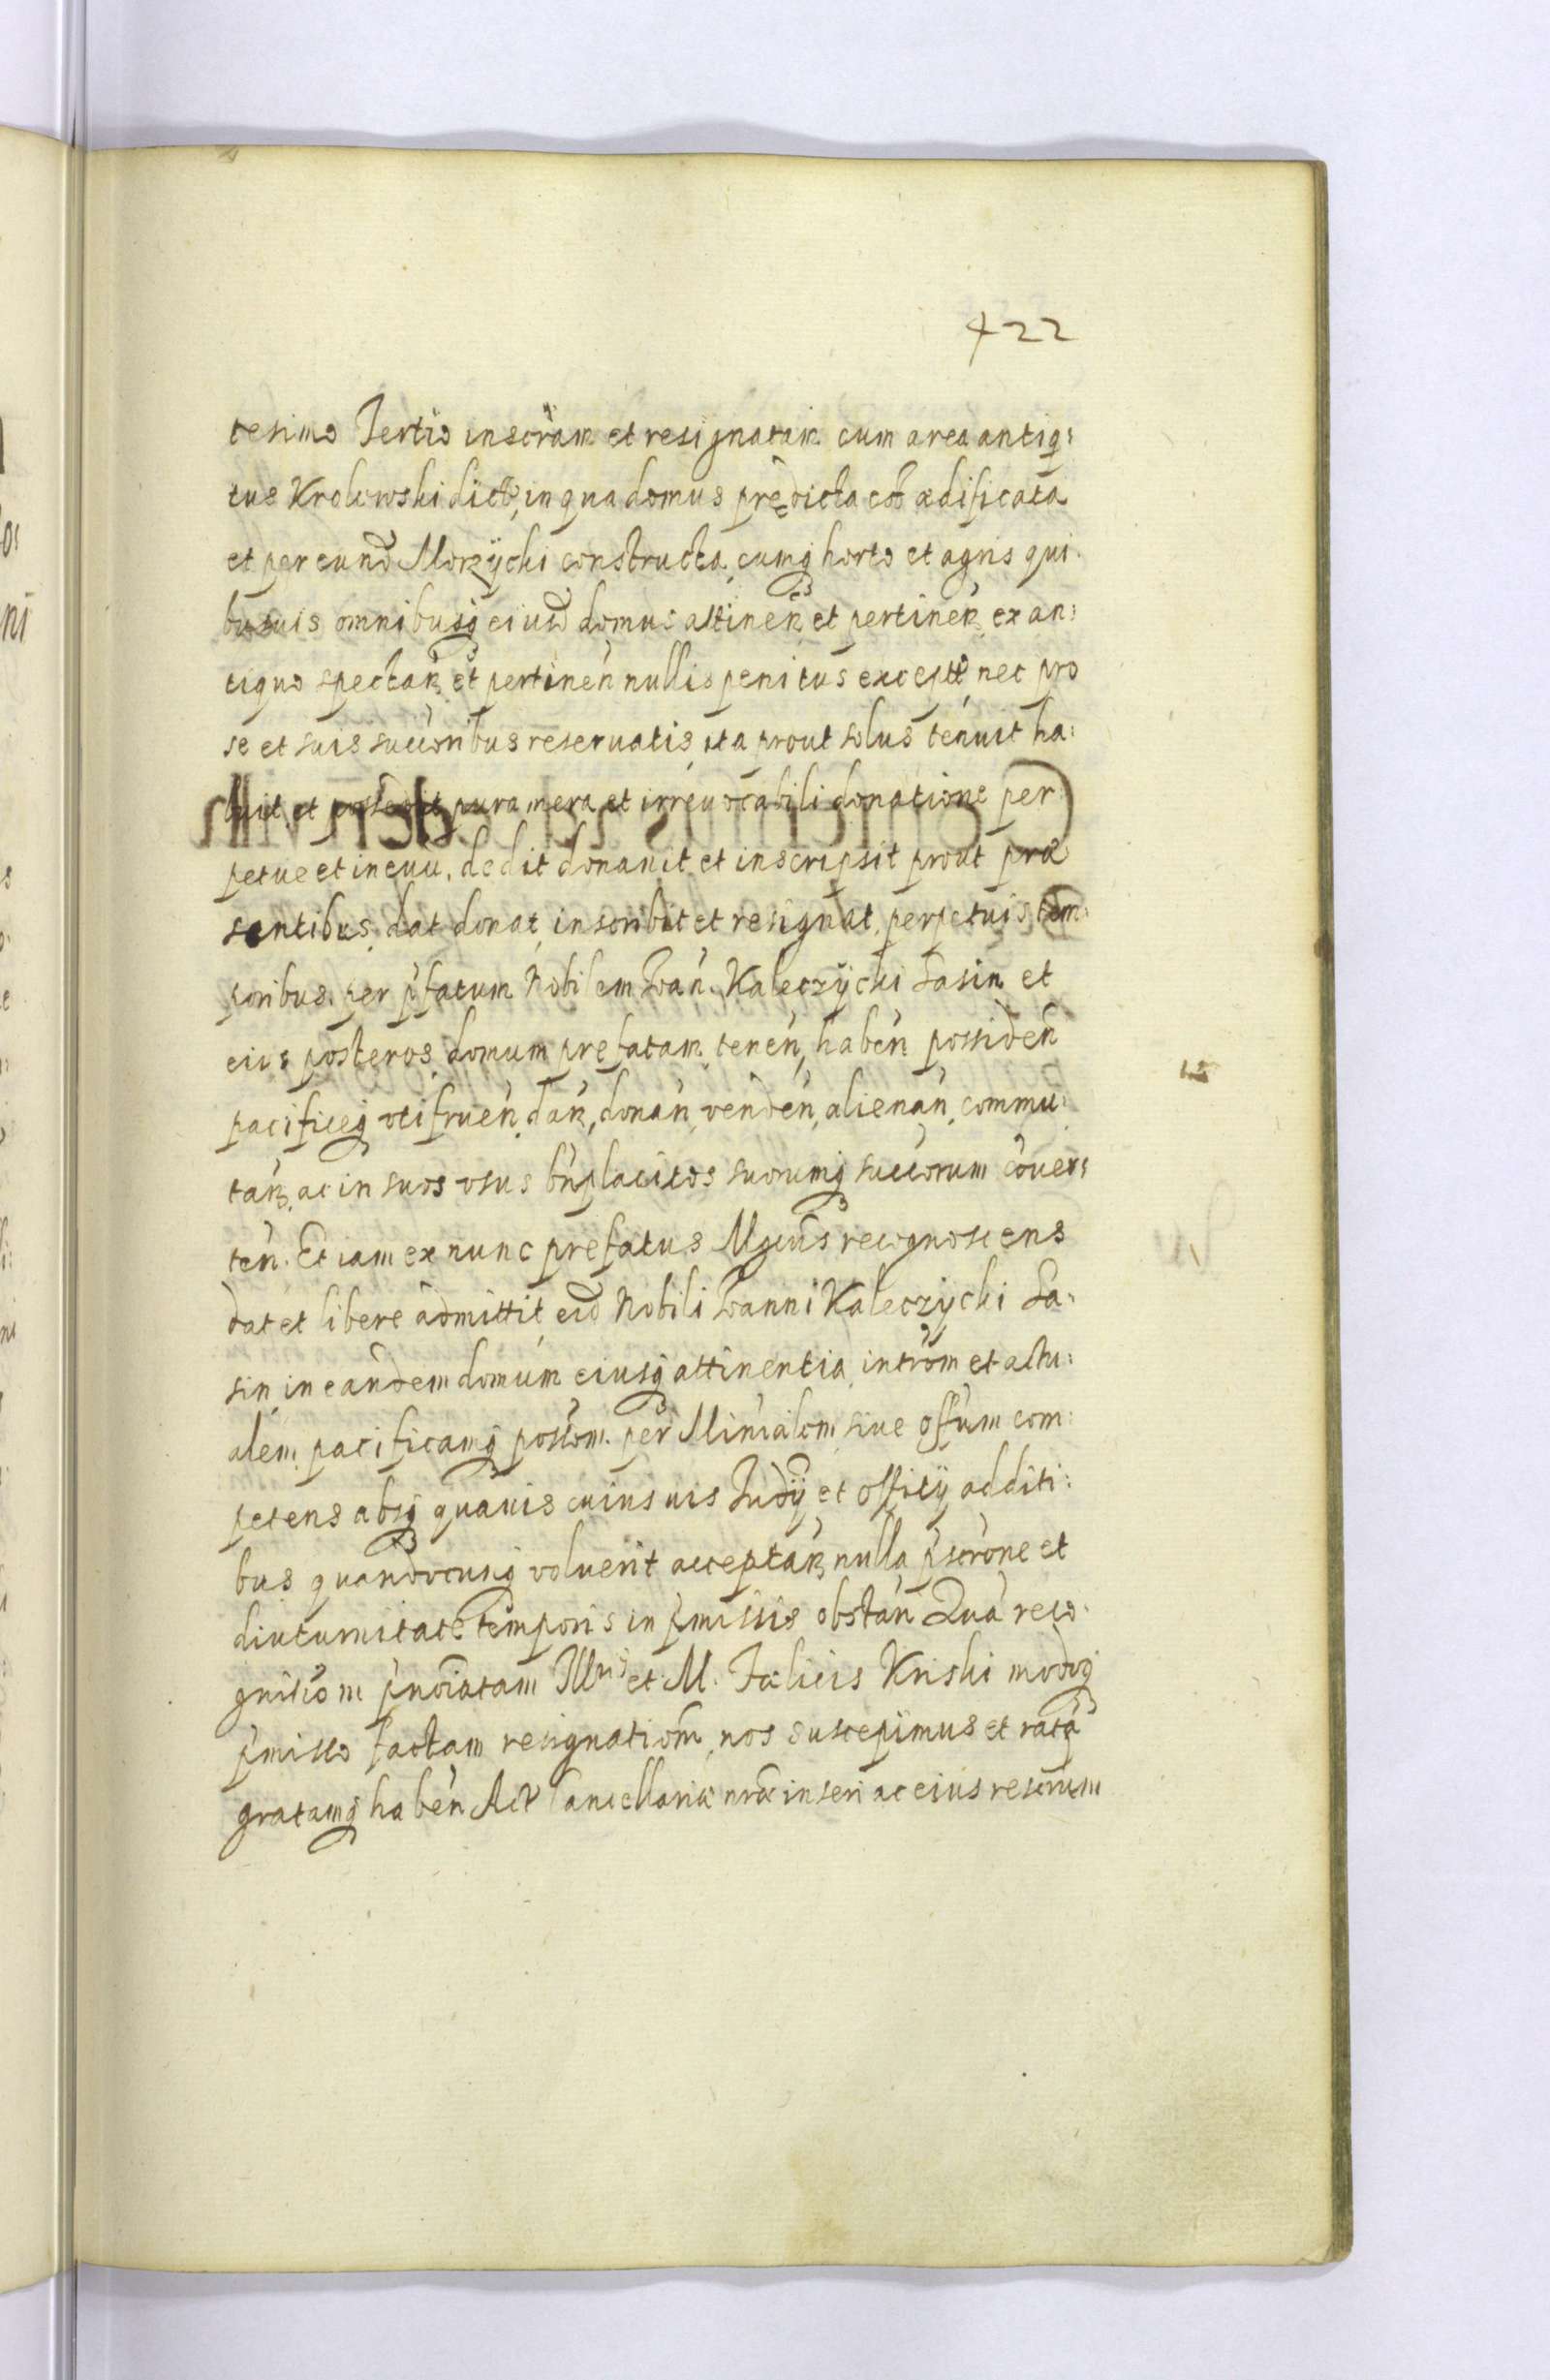 422
tesimo Tertio inscrâm et resignatam cum area antiq:
tus Krolewski dict, in qua domus prędicta est ædificata
et per eund Morzÿcki constructa, cumq horto et agris qui:
busuis omnibusq eiusd domus attinen et pertinen ex an:
tiquo spectan et pertinen nullis penitus except nec pro
se et suis succoribus reseruatis, ita prout solus tenuit ha:
buit et possedit pura mera et irreuocabili donatione per
petue et in euu. dedit donauit et inscripsit prout præ
sentibus dat donat inscribit et resignat perpetuis tem:
poribus. per pfatum Nobilem Ioan. Kaleczÿcki Sasin et
eius posteros domum prefatam tenen, haben possiden
pacificeq vtifruen, dan, donan, venden, alienan, commu:
tan, ac in suos vsus bnplacitos suorumq succorum côuer:
ten. Et iam ex nunc prefatus Mgcus recognoscens
dat et libere admittit eid Nobili Ioanni Kaleczÿcki Sa:
sin, in eandem domum eiusq attinentia, intrôm et actu:
alem, pacificamq possom. per Minialem siue Offum com:
petens absq quauis cuiusuis Iudÿ et Officÿ additi:
bus quandocunq voluerit acceptan, nulla pscrone et
diuturnitate temporis in pmissis obstan Quâ reco:
gnitiôm pnôiatam Illris et M. Fælicis Kriski modoq
pmisso factam resignatiôm, nos suscepimus et ratâ
gratamq haben Act Cancellariæ nræ inseri ac eius rescrum